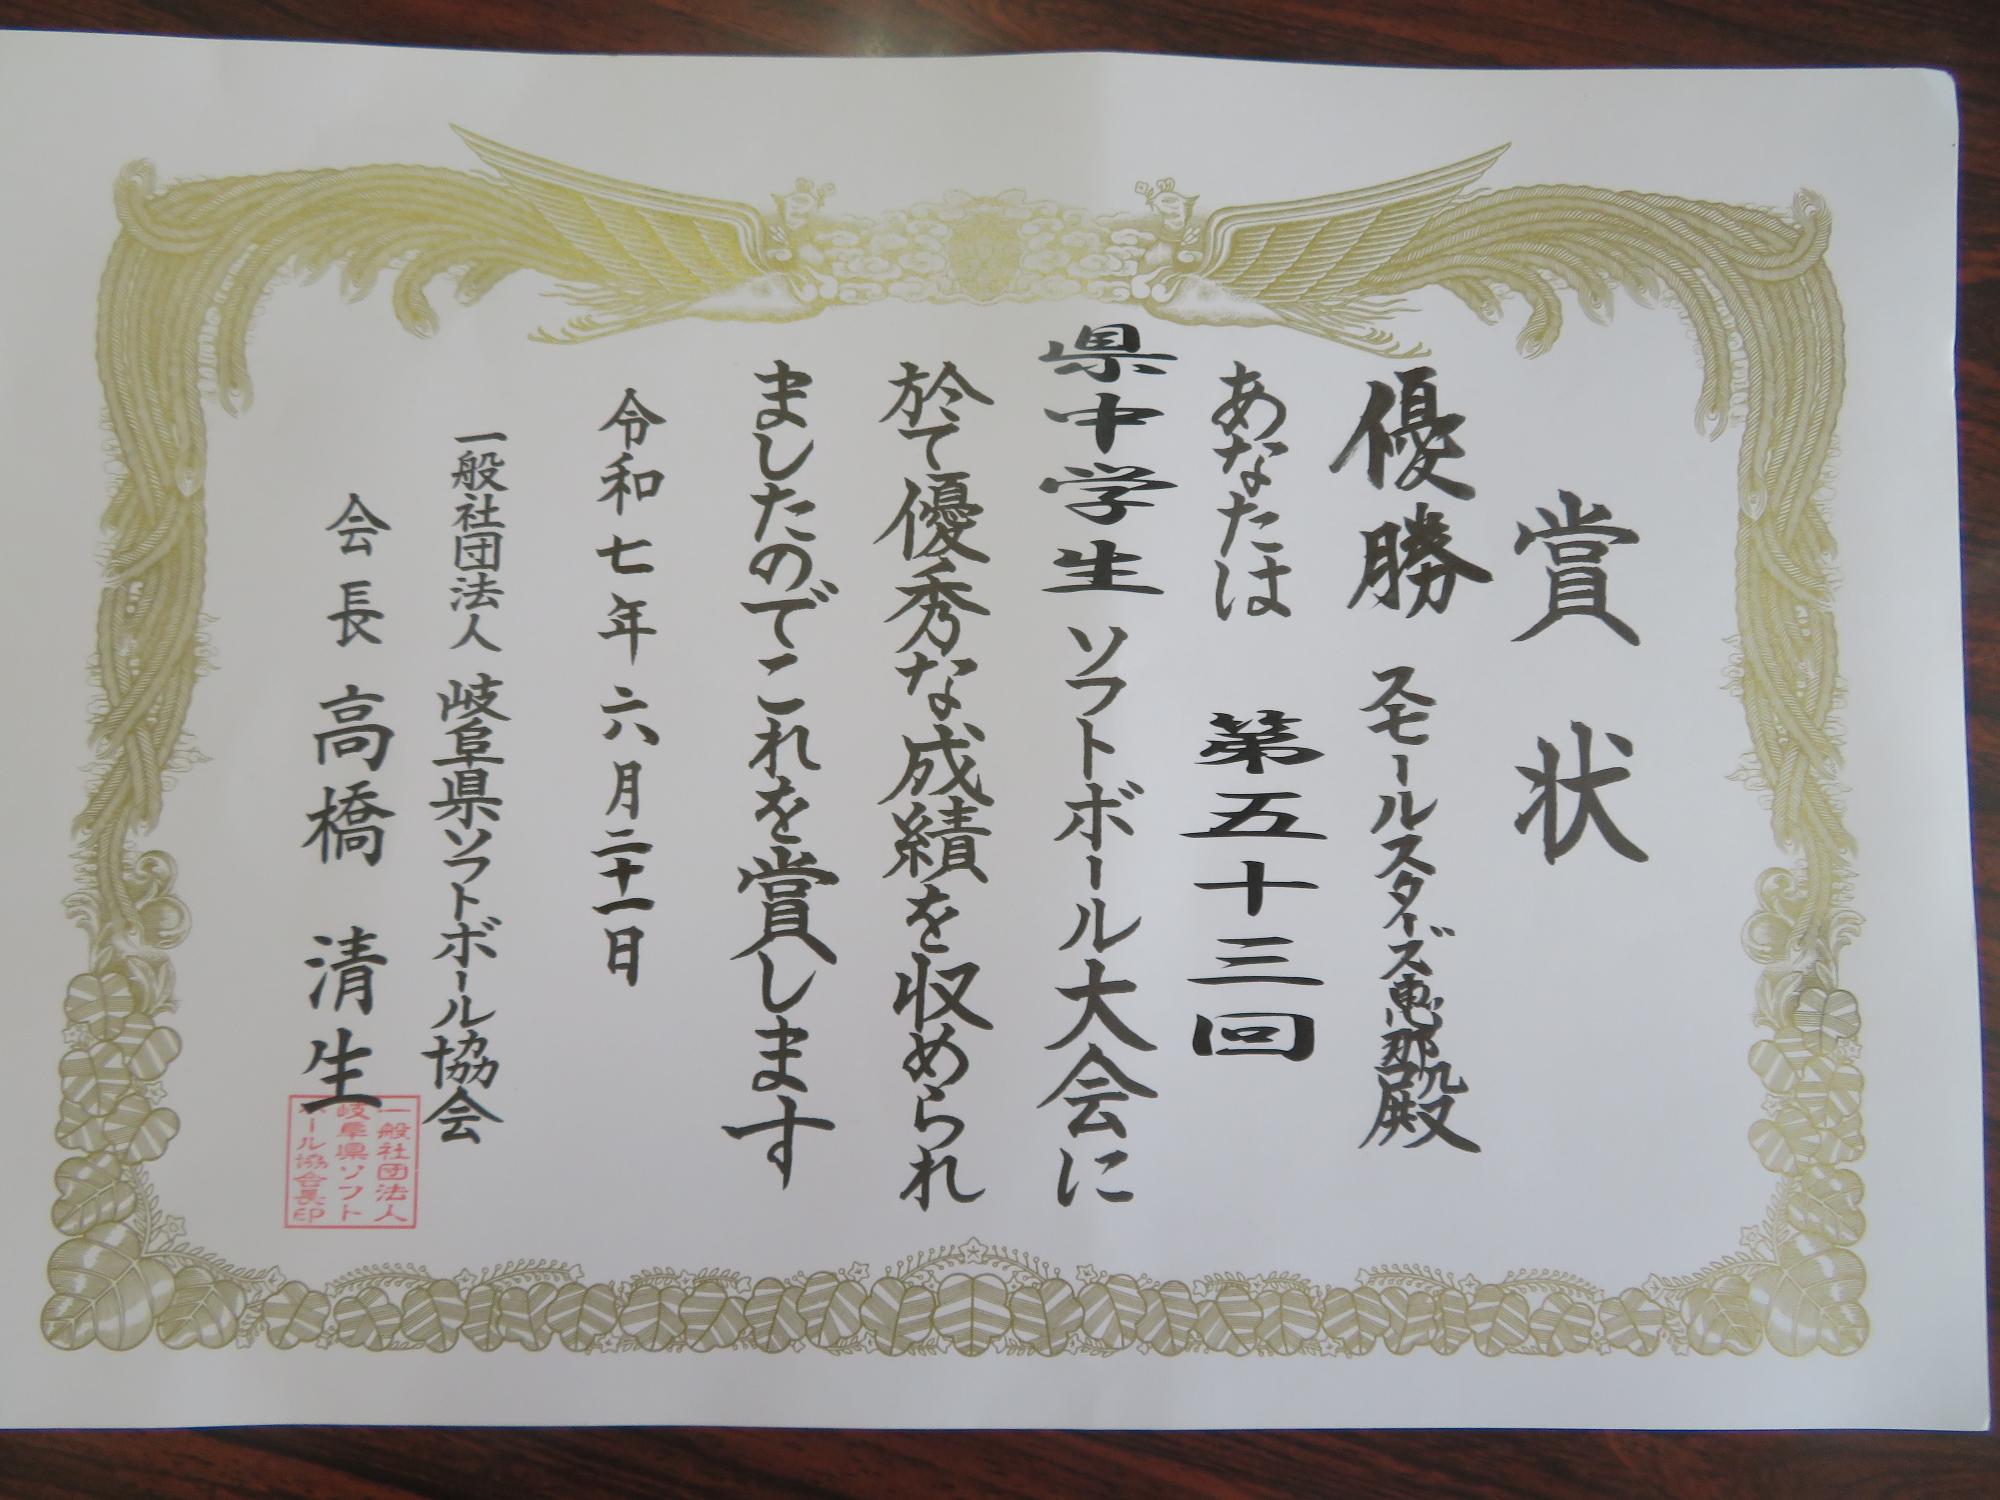 賞状
優勝 スモールスターズ恵那殿
あなたは 第五十三回
県中学生ソフトボール大会に
於て優秀な成績を収められ
ましたのでこれを賞します
令和七年六月二十一日
一般社団法人 岐阜県ソフトボール協会
会長 高橋 清生
一般社団法人
岐阜県ソフト
ボール協会長印